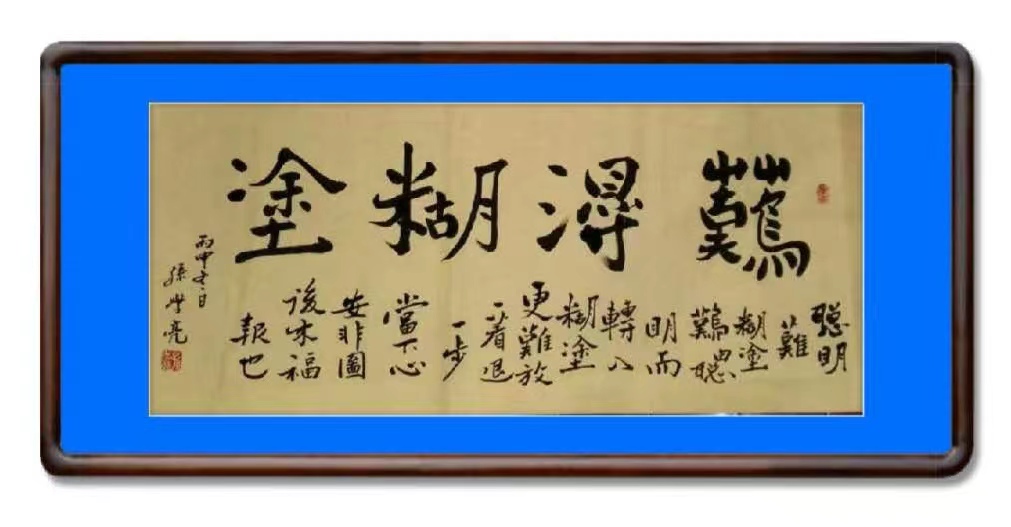 難淂糊塗
聰明
難
糊塗
難由聰
明而
轉入
糊塗
更難放
一着退
一步
當下心
安非圖
後來福
報也
丙申冬日
孫學亮